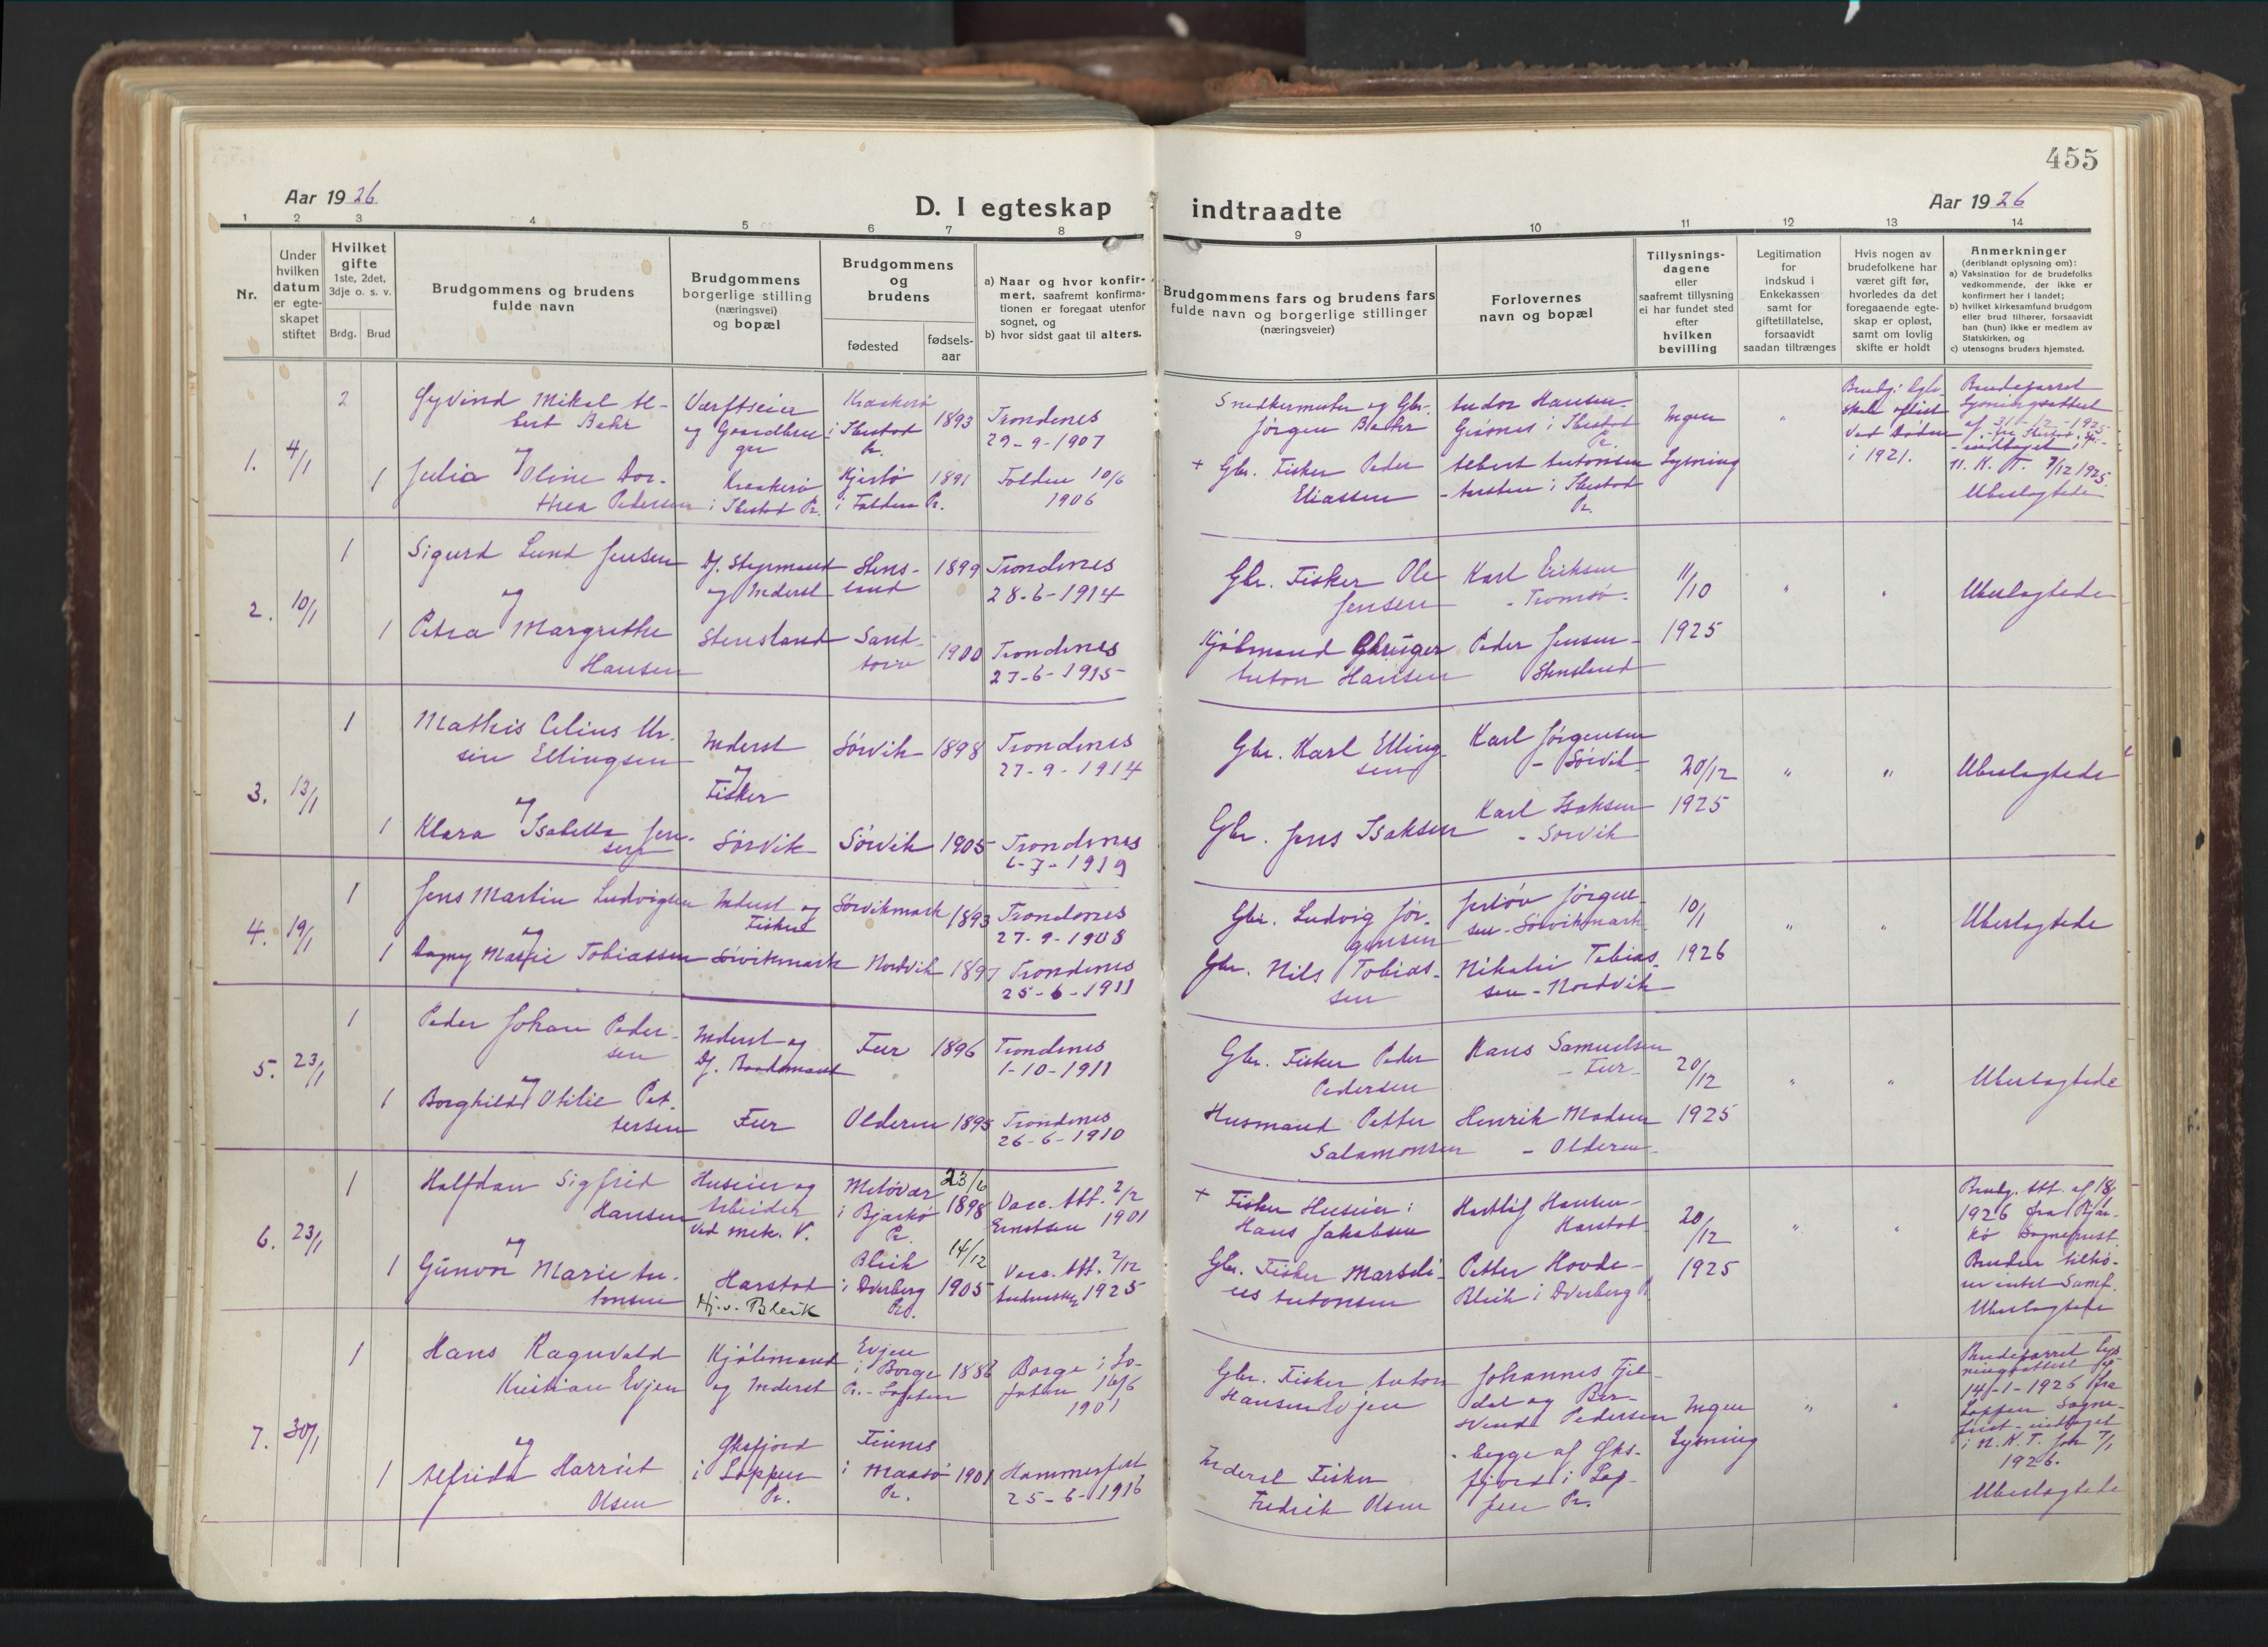 455
Aar 1926
D. I egteskap
indtraadte
Aar 1926
1 2 3 4 5 6 7 8 9 10 11 12 13 14
Nr.
Under
hvilken
datum
er egte-
skapet
stiftet
Hvilket
gifte
1ste, 2det,
3dje o. s. v.
Brdg. Brud
Brudgommens og brudens
fulde navn
Brudgommens
borgerlige stilling
(næringsvei)
og bopæl
Brudgommens
og
brudens
fødested
fødsels-
aar
a) Naar og hvor konfir-
mert, saafremt konfirma-
tionen er foregaat utenfor
sognet, og
b) hvor sidst gaat til alters.
Brudgommens fars og brudens fars
fulde navn og borgerlige stillinger
(næringsveier)
Forlovernes
navn og bopæl
Tillysnings-
dagene
eller
saafremt tillysning
ei har fundet sted
efter
hvilken
bevilling
Legitimation
for
indskud i
Enkekassen
samt for
giftetillatelse,
forsaavidt
saadan tiltrænges
Hvis nogen av
brudefolkene har
været gift før,
hvorledes da det
foregaaende egte-
skap er opløst,
samt om lovlig
skifte er holdt
Anmerkninger
(deriblandt oplysning om):
a) Vaksination for de brudefolks
vedkommende, der ikke er
konfirmert her i landet;
b) hvilket kirkesamfund brudgom
eller brud tilhører, forsaavidt
han (hun) ikke er medlem av
Statskirken, og
c) utensogns bruders hjemsted.
1. 4/1
2
Øyvind Mikal Al-
bert Bakr
Værftseier
og Gaardbru-
ger
Kraakerø
i Ibestad
Pr.
1893
Trondenes
29-9-1907
Snedkermester og Gbr.
Jørgen Bakr
Andor Hansen
Grisnes i Ibestad
Pr.
Ingen
"
Brudg: Egte-
skab opløst
ved Døden
i 1921.
Brudeparret
Lysningsattest
af 31-12-1925
fra Ibestad
indtaget i
N. K. T. 7/12 1925.
Ubeslægtede
og
1
Julia Oline Dor-
thea Pedersen
Kraakerø
i Ibestad Pr.
Kjærbø
i Folden Pr.
1891
Folden 10/6
1906
+ Gbr. Fisker Peder
Eliassen
Albert Antonsen
i Ibestad
Pr.
Lysning
2. 10/1
1
Sigurd Lund Jensen
Dj. Styrmand
og Inderst
Stens-
land
1899
Trondenes
28-6-1914
Gbr. Fisker Ole
Jensen
Karl Eriksen
- Tromsø -
11/10
1925
"
"
Ubeslægtede
og
1
Petra Margrethe
Hansen
Stensland
Sand-
torv
1900
Trondenes
27-6-1915
Kjøbmand Gbruger
Anton Hansen
Peder Jensen -
Stensland
3. 13/1
1
Mathis Celius Ur-
sin Ellingsen
Inderst
og
Fisker
Sørvik
1898
Trondenes
27-9-1914
Gbr. Karl Elling-
sen
Karl Jørgensen
- Sørvik
20/12
1925
"
"
Ubeslægtede
og
1
Klara Isabella Jen-
sen
Sørvik
Sørvik
1905
Trondenes
6-7-1919
Gbr. Jens Isaksen
Karl Isaksen
- Sørvik
4. 19/1
1
Jens Martin Ludvigsen
Inderst og
Fisker
Sørvikmark
1893
Trondenes
27-9-1908
Gbr. Ludvig Jør-
gensen
Jentøv Jørgen-
sen - Sørvikmark
10/1
1926
"
"
Ubeslægtede
og
1
Dagny Marie Tobiassen
Sørvikmark
Nordvik
1897
Trondenes
25-6-1911
Gbr. Nils Tobias-
sen
Nikolai Tobias-
sen - Nordvik
5. 23/1
1
Peder Johan Peder-
sen
Inderst og
Dj. Baadsmand
Fur
1896
Trondenes
1-10-1911
Gbr. Fisker Peder
Pedersen
Hans Samuelsen
- Fur -
20/12
1925
"
"
Ubeslægtede
og
1
Borghild Otilie Pet-
tersen
Fur
Olderen
1895
Trondenes
26-6-1910
Husmand Petter
Salamonsen
Henrik Madsen
- Olderen
6. 23/1
1
Halfdan Sigfrid
Hansen
Huseier og
Arbeider
ved mek. V.
Meløvær
i Bjarkø
Pr.
23/6
1898
Vacc. Att. 2/2
Ernstsen 1901
+ Fisker Huseier:
Hans Jakobsen
Hartlif Hansen -
Harstad
20/12
1925
"
"
Brudg. Att. af 18/
1926 fra Bjar-
kø Sogneprest.
Bruden tilhø-
rer intet Samf.
Ubeslægtede
og
1
Gunvor Marie An-
tonsen
Harstad
Hj. v. Bleik
Bleik
i Dverberg
Pr.
14/12
1905
Vacc. Att. 2/12
1925
Gbr. Fisker Marseli-
us Antonsen
Petter Hovde -
Bleik i Dverberg
7. 30/1
1
Hans Ragnvald
Kristian Evjen
Kjøbmand
og Inderst
Evjen
i Borge
Pr. - Lofoten
1886
Borge i Lo-
foten 16/6
1901
Gbr. Fisker Anton
Hansen Evjen
Johannes Fjel-
dal og Ber-
Pedersen
- begge af Øks-
fjord i Lop-
pen Pr.
Ingen
Lysning
"
"
Brudeparret Lys-
ningsattest af
14-1-1926 fra
Loppen Sogne-
prest - indtaget
i N. K. T. for 7/1
1926.
Ubeslægtede
og
1
Alfrida Harriet
Olsen
Øksfjord
i Loppen
Pr.
Finnes
i Maasø
Pr.
1901
Hammerfest
25-6-1916
Inderst Fisker
Fredrik Olsen